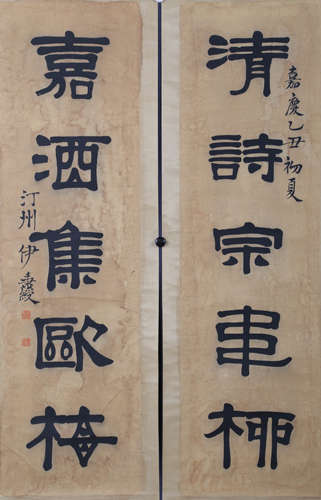 嘉慶乙丑初夏
清詩宗韋柳
嘉酒集歐梅
汀州伊秉綬